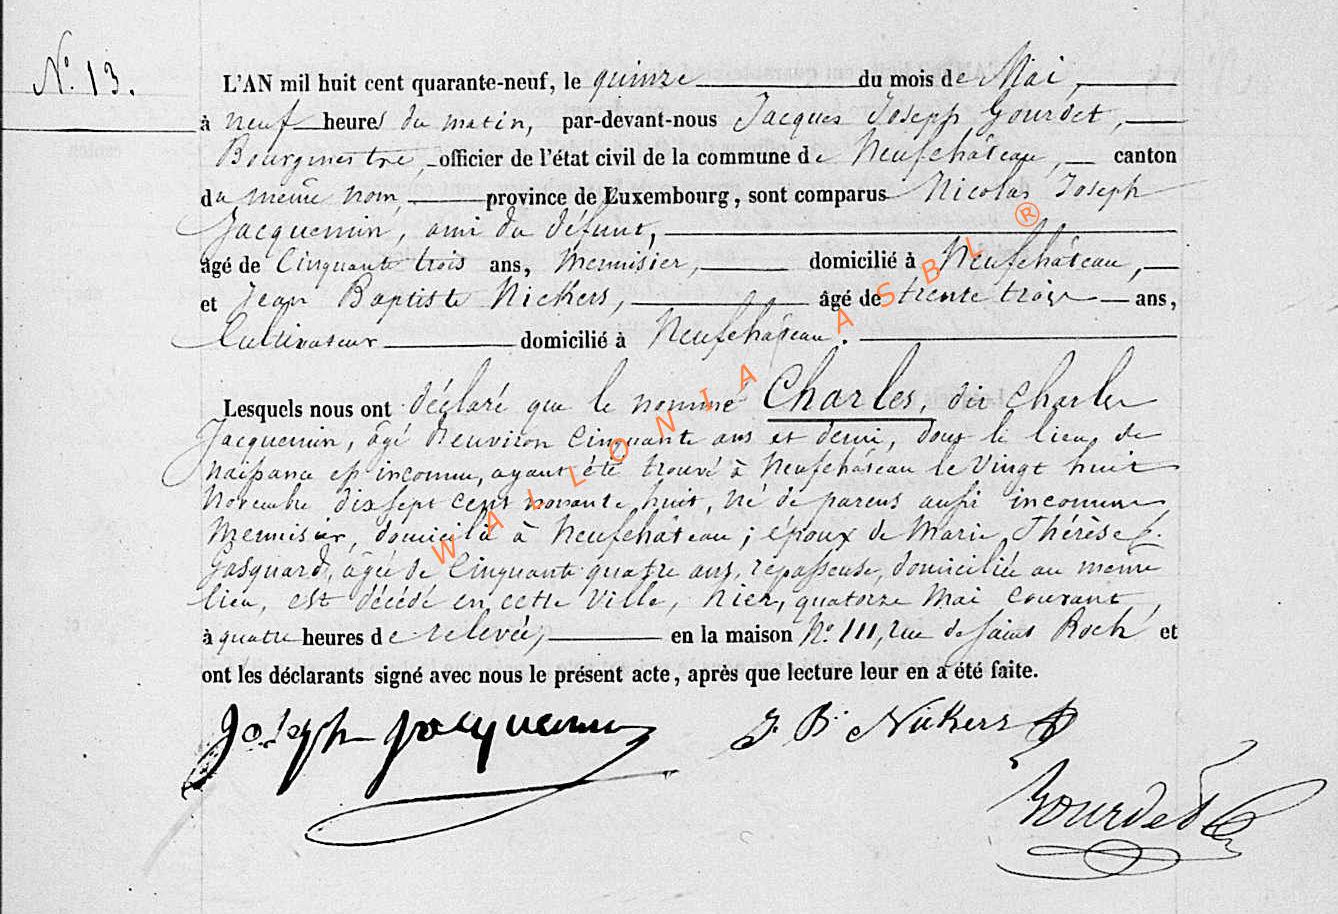 N° 13.
L'AN mil huit cent quarante-neuf, le quinze du mois de Mai,
à neuf heures du matin, par-devant-nous Jacques Joseph Gourdet,
Bourgmestre, officier de l'état civil de la commune de Neufchâteau, canton
du même nom, province de Luxembourg, sont comparus Nicolas Joseph
Jacquemin, ami du défunt,
âgé de Cinquante trois ans, Menuisier, domicilié à Neufchâteau,
et Jean Baptiste Nickers, âgé de trente trois ans,
Cultivateur domicilié à Neufchâteau.
Lesquels nous ont déclaré que le nommé Charles, dit Charles
Jacquemin, âgé d'environ Cinquante ans et demi, dont le lieu de
naissance est inconnu, ayant été trouvé à Neufchâteau le Vingt huit
Novembre dix sept cent nonante huit, né de parens aussi inconnus
Menuisier, domicilié à Neufchâteau; époux de Marie Thérèse
Gasquard, âgée de Cinquante quatre ans, repasseuse, domiciliée au même
lieu, est décédé en cette Ville, hier, quatorze Mai courant,
à quatre heures de relevée, en la maison N° 111, rue de Saint Roch et
ont les déclarants signé avec nous le présent acte, après que lecture leur en a été faite.
Joseph Jacquemin J. B. Nickers
Gourdet
WALLONIA ASBL ®